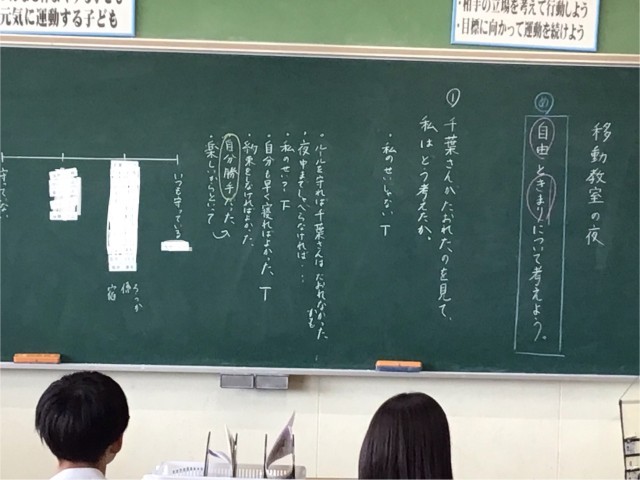 元気に運動する子ども
・相手の立場を考えて行動しよう
・目標に向かって運動を続けよう
移動教室の夜
め
自由ときまりについて考えよう。
① 千葉さんがたおれたのを見て、
私はどう考えたか。
・私のせいじゃない T
・ルールを守れば千葉さんはたおれなかったかも
・夜中までしゃべらなければ・・・
・私のせい? F
・自分も早く寝ればよかった。 T
・約束をしなければよかった。
自分勝手だった。
楽しいからといって
いつも守っている
係
宿